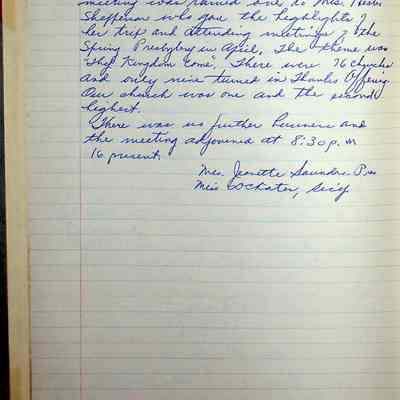 meeting was turned over to Mrs. Hester
Shefferson who gave the highlights of
her trip and attending meetings of the
Spring Presbytery in April. The theme was
"Thy Kingdom Come". There were 76 Churches
and only nine turned in Thanks Offering
Our church was one and the second
highest.
There was no further business and
the meeting adjourned at 8:30 p.m
16 present.
Mrs. Jeanette Saunders Pres
Miss Secy